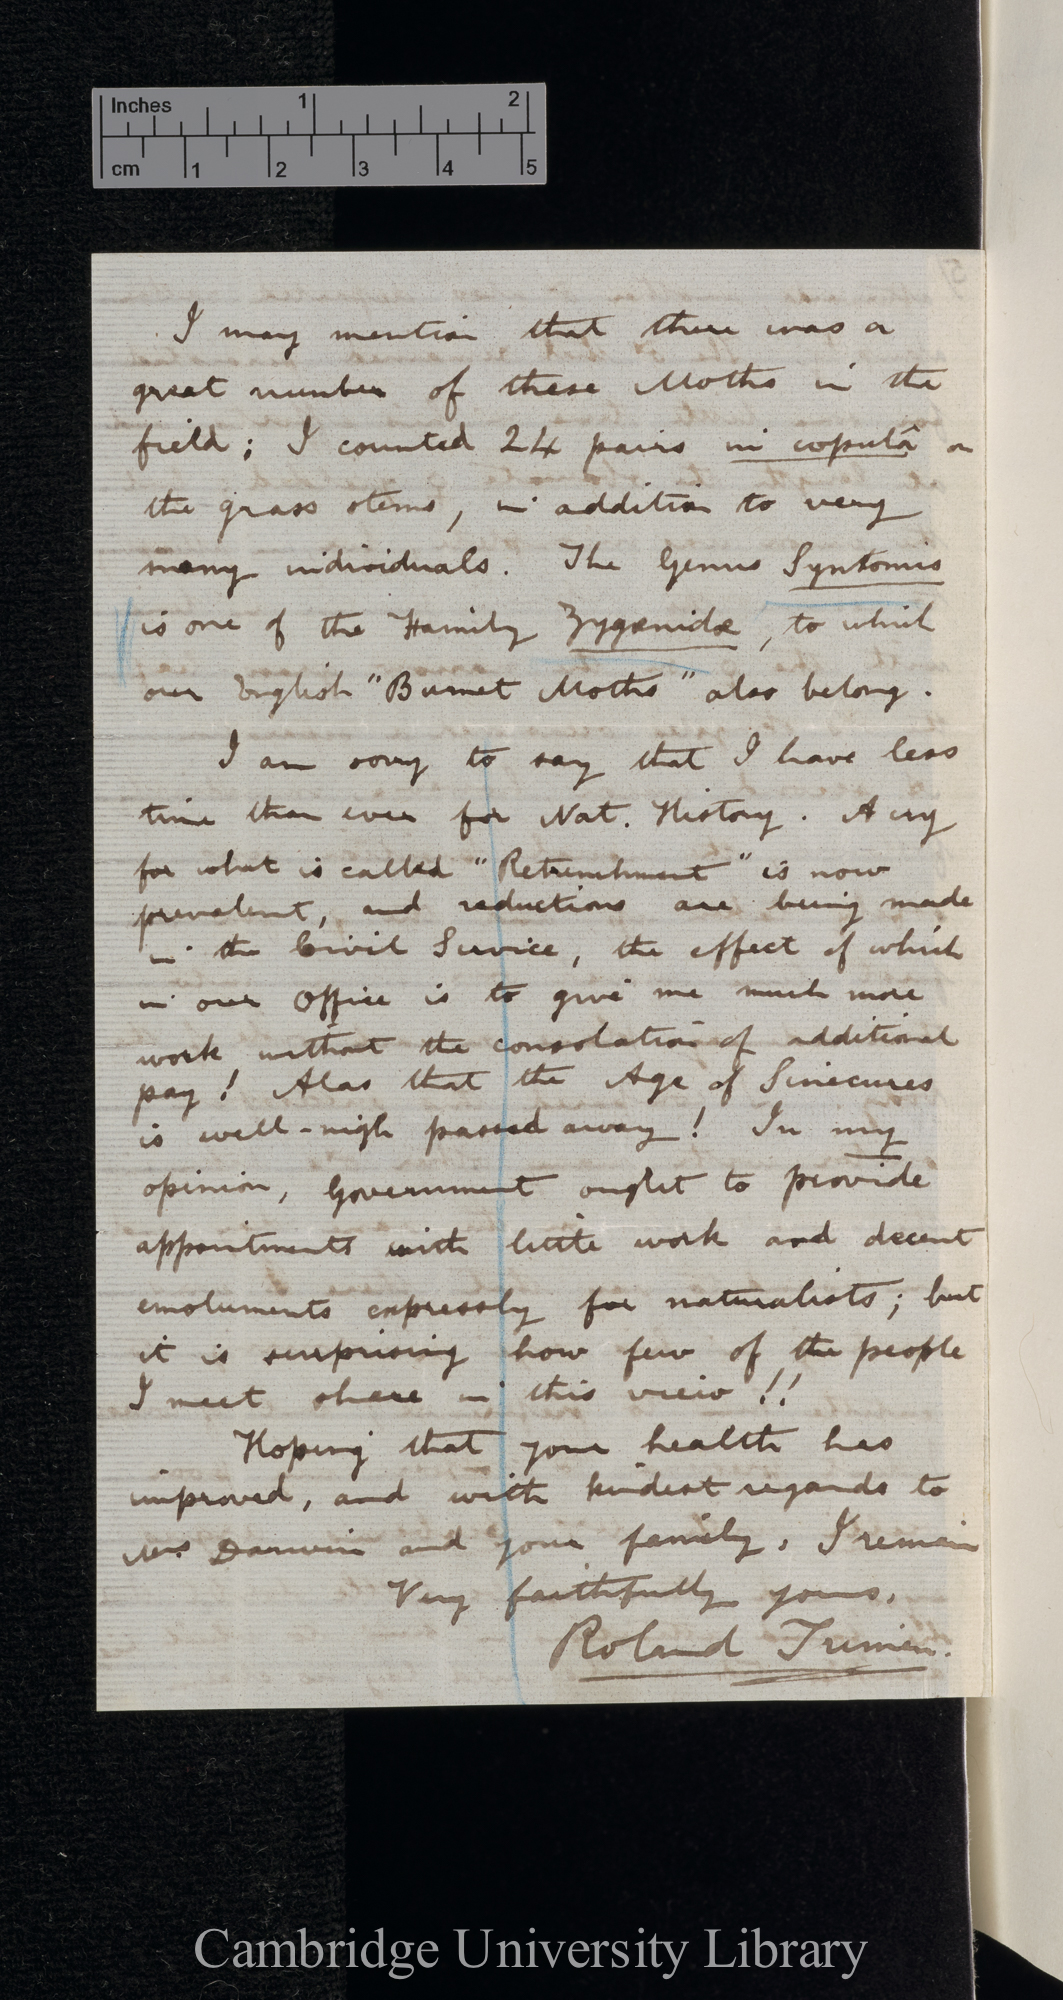 Inches 1 2
cm 1 2 3 4 5
I may mention that there was a
great number of these Moths in the
field; I counted 24 pairs in copulâ on
the grass stems, in addition to very
many individuals. The Genus Syntomis
is one of the Family Zygænidæ, to which
our English "Burnet Moths" also belong.
I am sorry to say that I have less
time than ever for Nat. History. A cry
for what is called "Retrenchment" is now
prevalent, and reductions are being made
in the Civil Service, the effect of which
in our Office is to give me much more
work without the consolation of additional
pay! Alas that the Age of Sinecures
is well-nigh passed away! In my
opinion, Government ought to provide
appointments with little work and decent
emoluments expressly for naturalists; but
it is surprising how few of the people
I meet share in this view!!
Hoping that your health has
improved, and with kindest regards to
Mrs. Darwin and your family, I remain
Very faithfully yours,
Roland Trimen.
Cambridge University Library